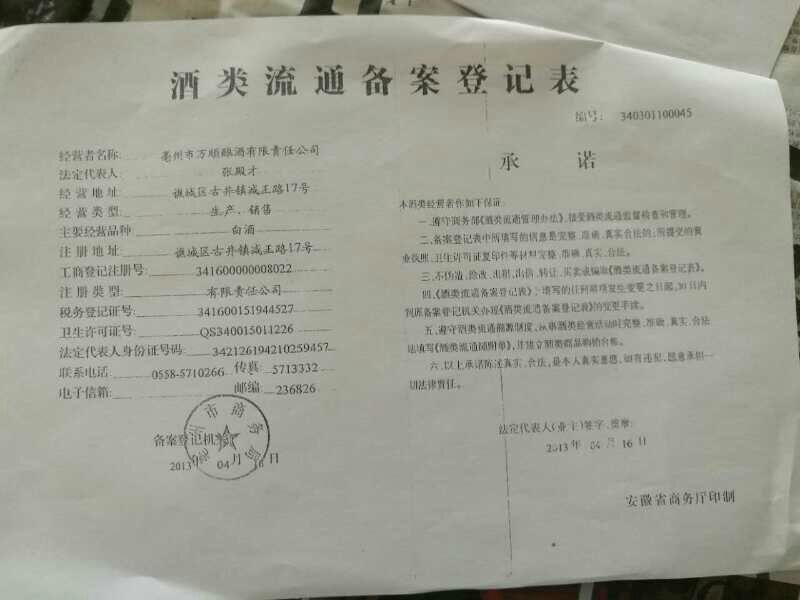 酒类流通备案登记表
编号: 340301100045
经营者名称: 亳州市万顺酿酒有限责任公司
法定代表人: 张殿才
经营地址: 谯城区古井镇减王路17号
经营类型: 生产、销售
主要经营品种 白酒
注册地址: 谯城区古井镇减王路17号
工商登记注册号: 341600000008022
注册类型: 有限责任公司
税务登记证号: 341600151944527
卫生许可证号: QS340015011226
法定代表人身份证号码: 342126194210259457
联系电话 0558-5710266 传真: 5713332
电子信箱: 邮编: 236826
备案登记机关
亳州市商务局
2013年 04月 16日
承诺
本酒类经营者作如下保证:
一、遵守商务部《酒类流通管理办法》,接受酒类流通监督检查和管理。
二、备案登记表中所填写的信息是完整、准确、真实合法的;所提交的营
业执照、卫生许可证复印件等材料完整、准确、真实、合法。
三、不伪造、涂改、出租、出借、转让、买卖或骗取《酒类流通备案登记表》。
四、《酒类流通备案登记表》上填写的任何事项发生变更之日起,30日内
到原备案登记机关办理《酒类流通备案登记表》的变更手续。
五、遵守酒类流通溯源制度,从事酒类经营活动时完整、准确、真实、合法
地填写《酒类流通随附单》,并建立酒类商品购销台帐。
六、以上承诺陈述真实、合法,是本人真实意思,如有违犯,愿意承担一
切法律责任。
法定代表人(业主)签字、盖章:
2013年 04月 16日
安徽省商务厅印制